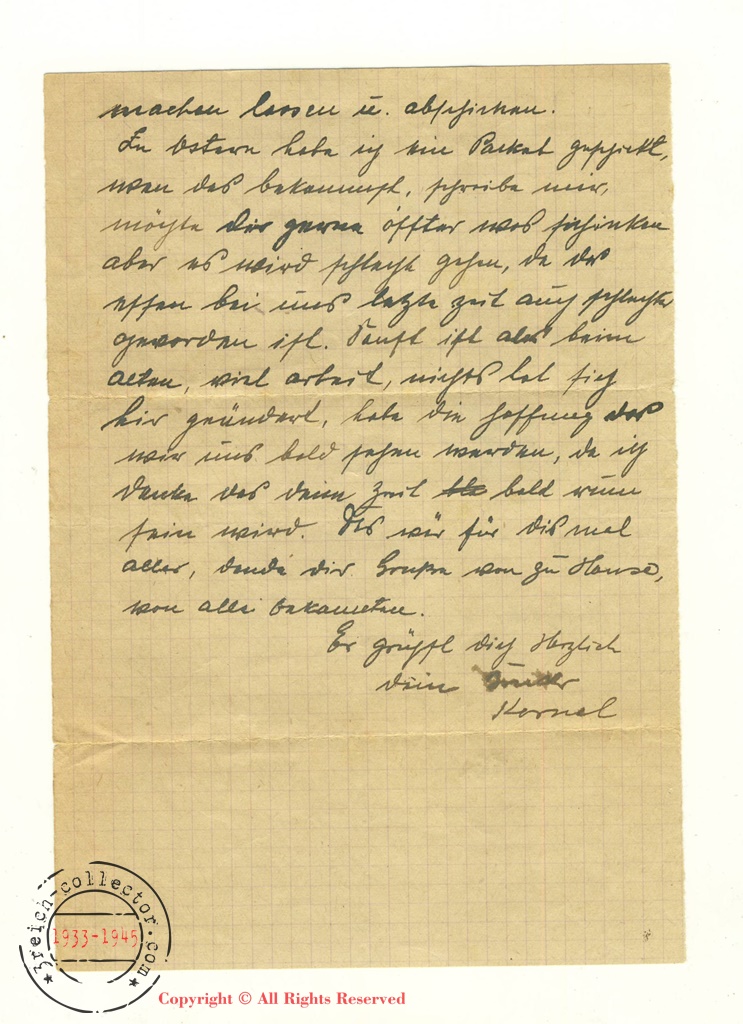 machen lassen u. abschicken.
Zu Ostern habe ich ein Packet geschickt,
wen das bekommst, schreibe mir,
möchte dir gerne öffter was schicken
aber es wird schlecht gehen, da das
essen bei uns letzte zeit auch schlechter
geworden ist. Sonst ist alles beim
alten, viel arbeit, nichts hat sich
hir geändert, habe die hoffnung das
wir uns bald sehen werden, da ich
denke das deine zeit bald rum
sein wird. Das wär für dismal
alles, sende dir Grüße von zu Hause,
von alle bekannten.
Es grüßt dich Herzlich
dein Bruder
Kornel
3reich-collector.com
1933-1945
Copyright © All Rights Reserved